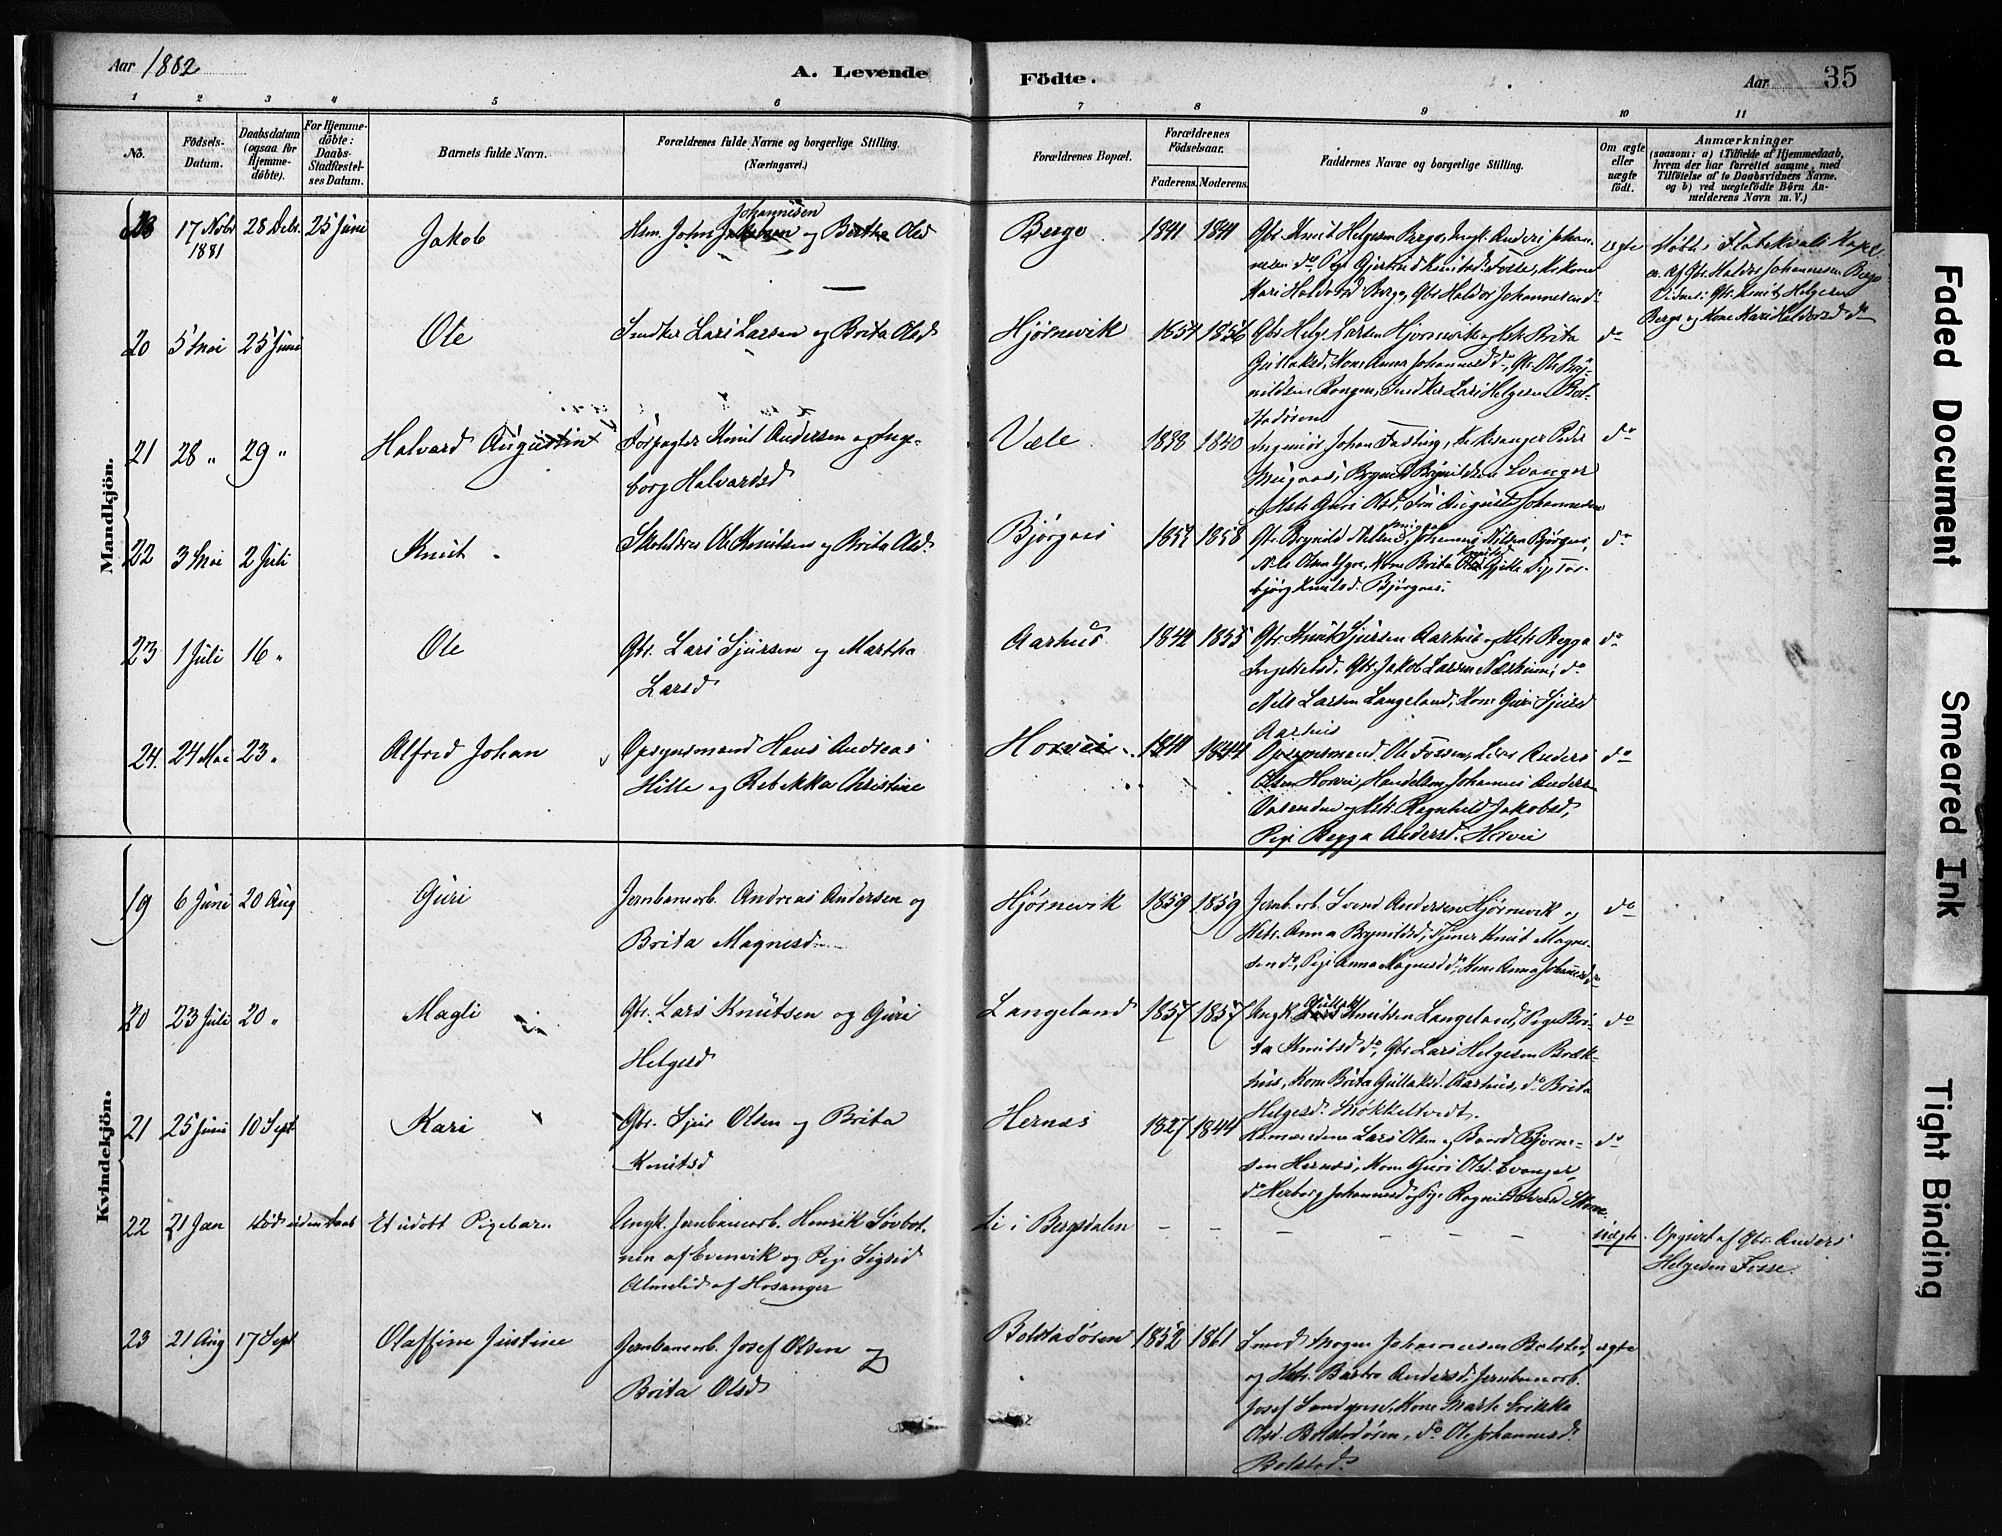 Aar 1882
A. Levende
Födte.
Aar
35
1 2 3 4 5 6 7 8 9 10 11
No.
Födsels-Datum.
Daabsdatum (ogsaa for Hjemme-døbte).
For Hjemme-døbte: Daabs-Stadfæstel-ses Datum.
Barnets fulde Navn.
Forældrenes fulde Navne og borgerlige Stilling. (Næringsvei.)
Forældrenes Bopæl.
Forældrenes Födselsaar.
Faderens. Moderens.
Faddernes Navne og borgerlige Stilling.
Om ægte eller uægte födt.
Anmærkninger
(saasom: a) i Tilfælde af Hjemmedaab,
hvem der har forrettet samme, med
Tilföielse af to Daabsvidners Navne.
og b) ved uægtefödte Börn An-
melderens Navn m. V.)
Mandkjön.
17 Novbr 1881 28 Debr. 25 Juni Jakob
Johannesen
Hsm. John og Olsd
Berge 1841 1841
Gbr. Knut Helgesen Berge, Ungk. Anders Johan-
nesen do, Pige Gjertrud Knutsd. Fosse, Kone
Mari Haldorsd Berge, Gbr Haldor Johannesen do
ægte
Døbt i Flatekvals Kapel
a. Af Gbr. Haldor Johannesen Berge
Vidner: Gbr. Knut Helgesen
Berge og Kone Mari Haldorsd do
20 5 Mai 25 Juni Ole
Smed Lars Larsen og Brita Olsd
Hjørnevik 1854 1856
Gbr Helge Larsen Hjørnevik og Hst. Brita
Gullaksd, Kone Anna Johannesd do, Gbr. Ole Bry-
nildsen Rongen, Lars Helgesen Bol-
stadøren
do
21 28 " 29 " Halvard Augustin
Forpagter Knut Andersen og Inge-
borg Halvardsd
Væle 1838 1840
Ingeniør Johan Fasting, Peder
Brynild Brynildsen Evanger
og Hst. Guri Olsd, August Johannesen
do
22 3 Mai 2 Juli Knut
Skoleholder Ole Knutsen og Brita Olsd.
Bjørgaas 1858
Gbr. Brynild Nilsen, Johannes Nilsen Bjørgaas,
Nils Olsen Ygre, Kone Brita Knutsd Gjelle Pige Tor-
bjørg Knutsd. Bjørgaas.
do
23 1 Juli 16 " Ole
Gbr. Lars Sjursen og Martha
Larsd
Aarhus 1842 1855
Gbr. Knut Sjursen Aarhus og Hst. Begga
Ingebrtsd. Gbr Jakob Larsen Næsheim, do
Nils Larsen Langeland, Kone Guri Sjursd
Aarhus
do
24. 24 Mai 23 " Alfred Johan
Opsynsmand Hans Andreas
Hille og Rebekka Christine
Horvei 1844
Opsynsmand Ole Fossen, Anders
Olsen Horvei, Handelsm. Johannes Anders.
Vasenden og Hst. Ragnhild Jakobsd,
Pige Begga Andersd. Horvei
do
Kvindekjön.
19 6 Juni 20 Aug Guri
Jernbanearb. Andreas Andersen og
Brita Magnesd.
Hjørnevik 1859 1859
Jernb.arb. Svend Andersen Hjørnevik og
Hst. Anna Brynildsd, Tjener Knut Magne-
sen do, Pige Anna Magnesd do, Kone Anna Johannesd do
do
20 23 Juli 20 " Magli
Gbr. Lars Knutsen og Guri
Helgesd
Langeland 1857 1857
Ungk. Gullak Knutsen Langeland, Pige Bri-
ta Knutsd do, Gbr. Lars Helgesen Bræk-
hus, Kone Brita Gullaksd. Aarhus, do Brita
Helgesd. Mökkeltvedt.
do
21 25 Juni 10 Sept Kari
Gbr. Sjur Olsen og Brita
Knutsd
Hernæs 1827 1844
Husmændene Lars Olsen og Baard Bjørne-
sen Hernæs, Kone Guri Olsd. Evanger,
do Herborg Johannesd og Pige Ragnild
do
22 21 Jan død uden daab Et udøbt Pigebarn
Ungk. Jernbanearb. Henrik Søvbot-
nen af Evenvik og Pige Sigrid
Almelid af Hosanger
Li i Bergsdalen – – – – – – –
uægte.
Opgivet af Gbr. Anders
Helgesen Fosse.
23 21 Aug 17 Sept Olaffine Justine
Jernbanearb. Josef Olsen og
Brita Olsd
Bolstadøren 1852 1861
Smed Mogne Johannesen Bolstad,
og Hst. Barbro Andersd, Jernbanearb.
Josef, Kone Marte Erikka
Olsd. Bolstadøren, do Ole Johannesd.
Bolstad.
ægte
Faded Document
Smeared Ink
Tight Binding